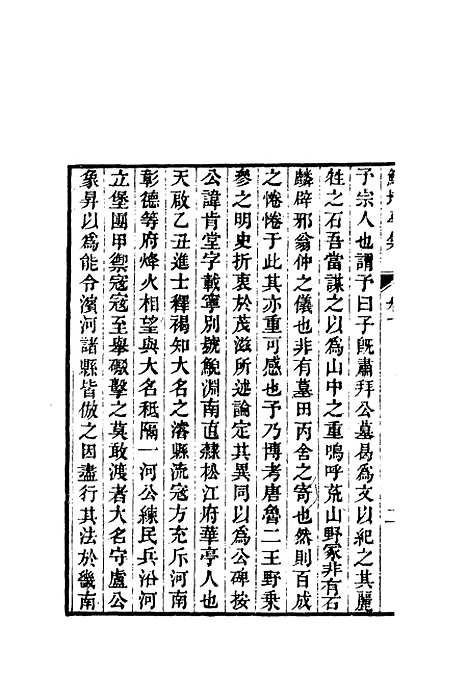 鮚埼亭集
予宗人也謂予曰子既肅拜公墓曷爲文以紀之其麗
牲之石吾當謀之以爲山中之重嗚呼荒山野冢非有石
麟辟邪翁仲之儀也非有墓田丙舍之寄也然則百成
之惓惓于此其亦重可感也予乃博考唐魯二王野乘
參之明史折衷於茂滋所述論定其異同以爲公碑按
公諱肯堂字載寧別號鯢淵南直隸松江府華亭人也
天啟乙丑進士釋褐知大名之濬縣流寇方充斥河南
彰德等府烽火相望與大名秪隔一河公練民兵沿河
立堡團甲禦寇寇至舉礮擊之莫敢渡者大名守盧公
象昇以爲能令濱河諸縣皆倣之因盡行其法於畿南